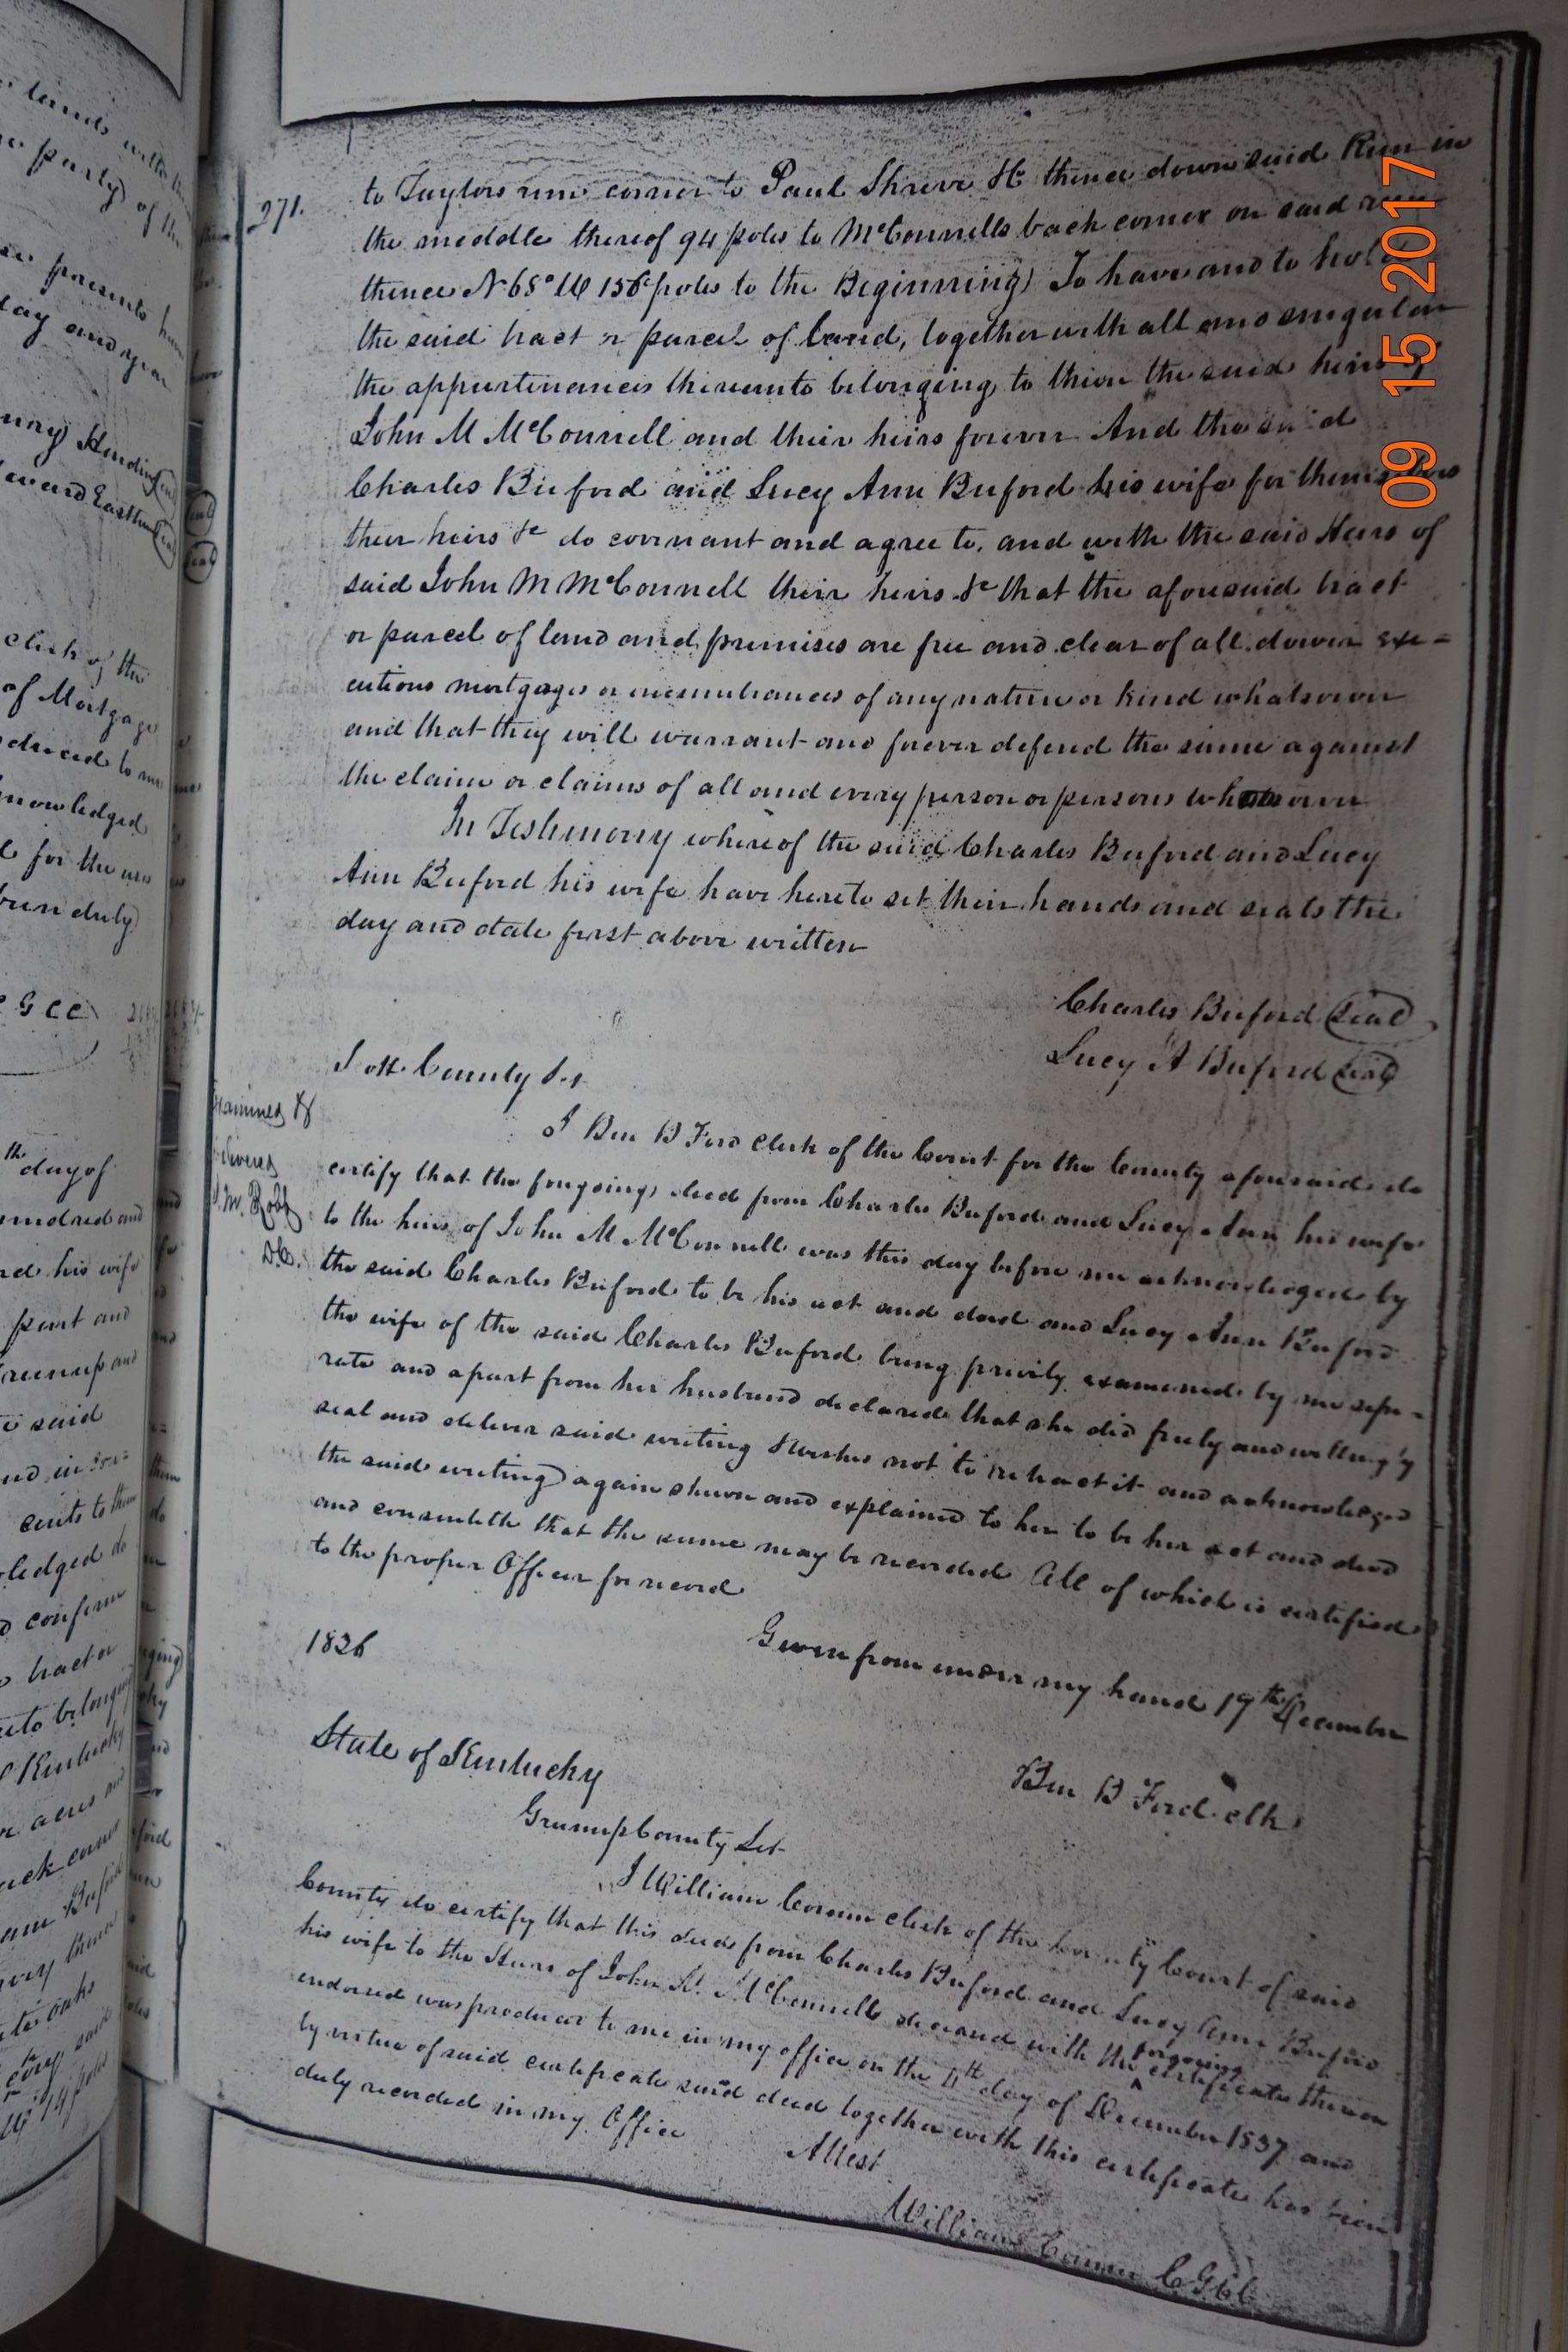 271.
to Taylors run corner to Paul Shreve &c thence down said Run in
the middle thereof 94 poles to McConnells back corner on said run
thence N 68° W 156 poles to the Beginning To have and to hold
the said tract or parcel of Land, together with all and singular
the appurtinances thereunto belonging to them the said heirs of
John M McConnell and their heirs forever And the said
Charles Buford and Lucy Ann Buford his wife for themselves
their heirs &c do covenant and agree to, and with the said Heirs of
said John M McConnell their heirs &c that the aforesaid tract
or parcel of land and premises are free and clear of all dower exe-
cutions mortgages or incumbrances of any nature or kind whatsoever
and that they will warrant and forever defend the same against
the claim or claims of all and every person or persons whatsoever
In Testimony whereof the said Charles Buford and Lucy
Ann Buford his wife have hereto set their hands and seals the
day and date first above written
Charles Buford (seal)
Lucy A Buford (seal)
Scott County Sct
Examined &
delivered
J. M. Robb
D.C.
I Ben B Ford clerk of the Court for the County aforesaid do
certify that the foregoing deed from Charles Buford and Lucy Ann his wife
to the heirs of John M McConnell was this day before me acknowledged by
the said Charles Buford to be his act and deed and Lucy Ann Buford
the wife of the said Charles Buford being privily examined by me sepe-
rate and apart from her husband declared that she did freely and willingly
seal and deliver said writing & wishes not to retract it and acknowledged
the said writing again shewn and explained to her to be her act and deed
and consenteth that the same may be recorded All of which is certified
to the proper Officer for record
Given from under my hand 19th December
1836
Ben B Ford clk
State of Kentucky
Greenup County Sct
I William Corum clerk of the County Court of said
County do certify that this deed from Charles Buford and Lucy Ann Buford
his wife to the Heirs of John M. McConnell deceased with the foregoing certificate thereon
endorsed was produced to me in my office on the 4th day of December 1837 and
by virtue of said certificate said deed together with this certificate has been
duly recorded in my Office
Attest
William Corum C G C C
09 15 2017